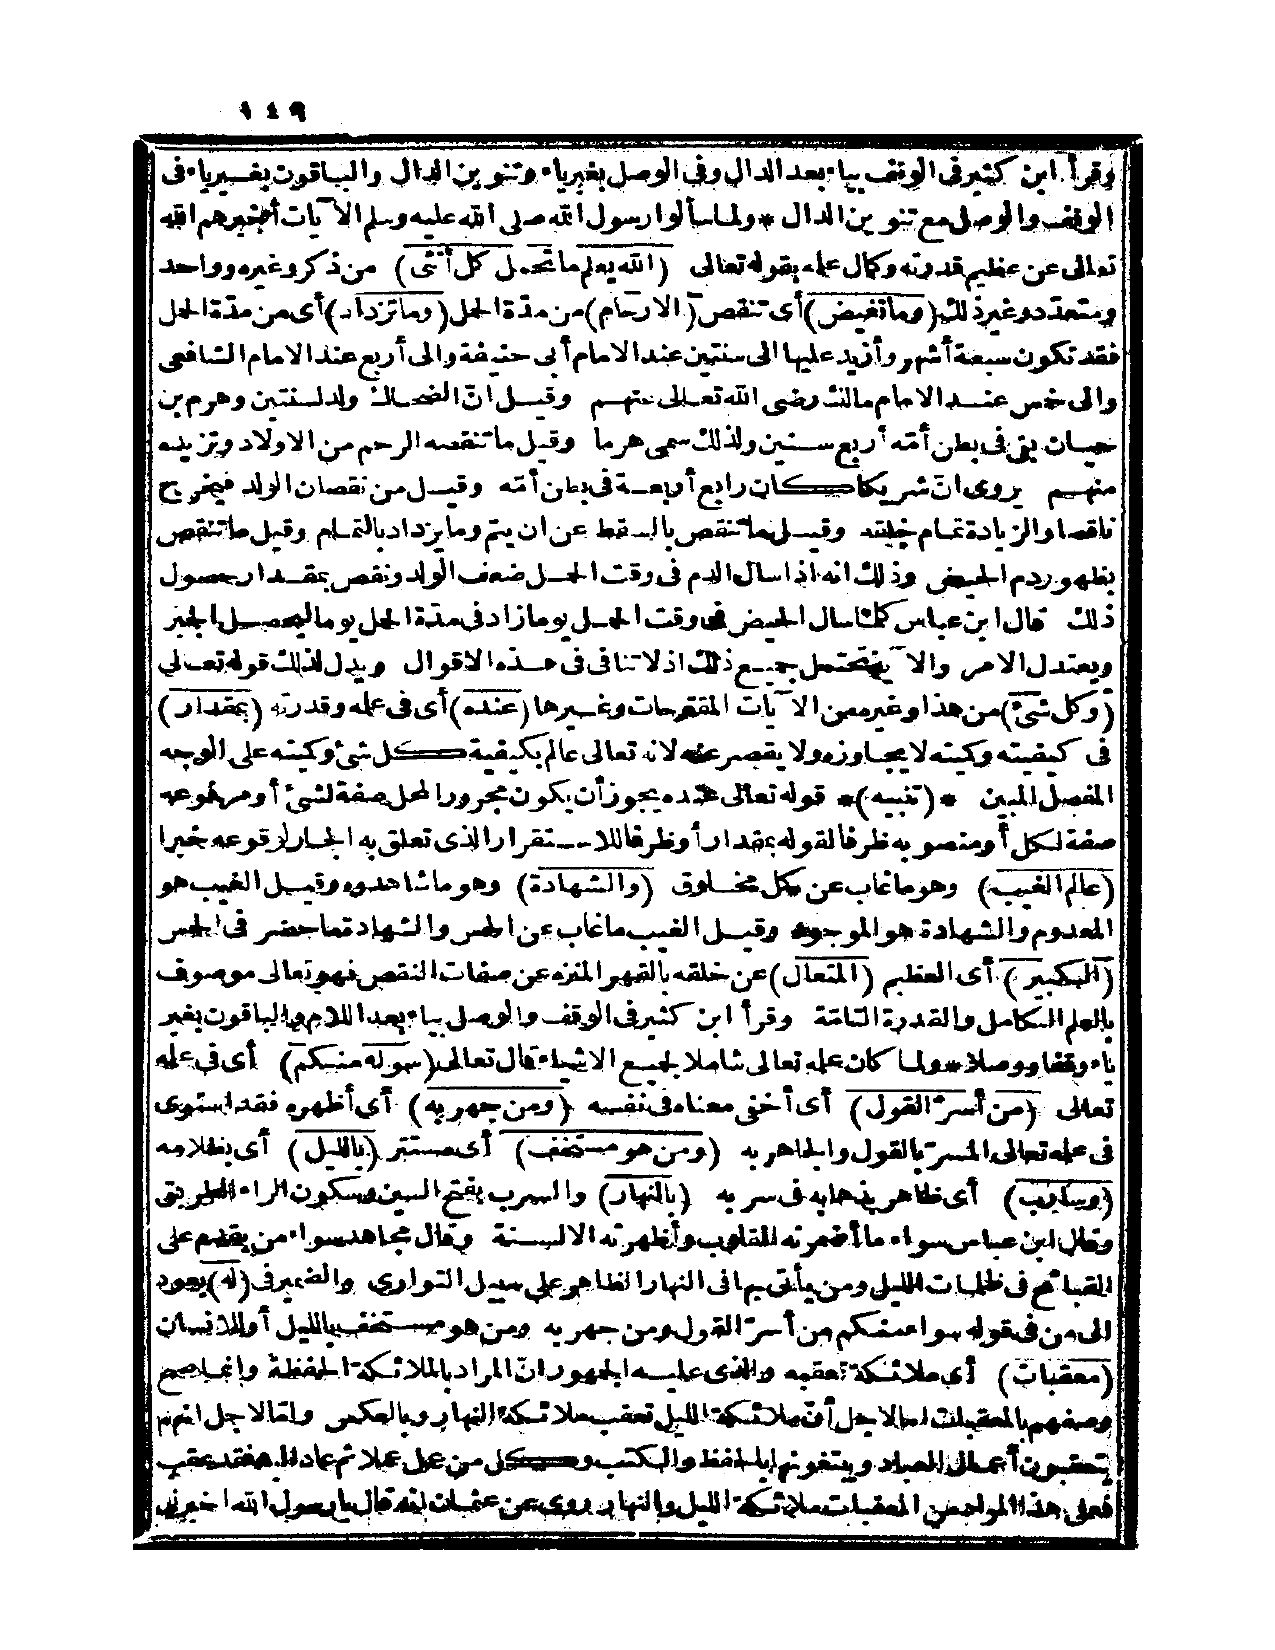 ١٤٩
وقرأ ابن كثير فى الوقف بياء بعد الدال وفى الوصل بغير ياء وتنوين الدال والباقون بغير ياء فى
الوقف والوصل مع تنوين الدال * ولما سألوا رسول الله صلى الله عليه وسلم الآيات أخبرهم الله
تعالى عن عظيم قدرته وكمال علمه بقوله تعالى (الله يعلم ما تحمل كل أنثى) من ذكر وغيره وواحد
ومتعدد وغير ذلك (وما تغيض) أى تنقص (الارحام) من مدة الحمل (وما تزداد) أى من مدة الحمل
فقد تكون سبعة أشهر وأزيد عليها الى سنتين عند الامام أبى حنيفة والى أربع عند الامام الشافعى
والى خمس عند الامام مالك رضى الله تعالى عنهم وقيل انّ الضحاك ولد لسنتين وهرم بن
حيان بقى فى بطن أمّه أربع سنين ولذلك سمى هرما وقيل ما تنقصه الرحم من الاولاد وتزيده
منهم يروى انّ شريكا كان رابع أربعة فى بطن أمّه وقيل من نقصان الولد فيخرج
ناقصا والزيادة تمام خلقه وقيل ما تنقص بالسقط عن ان يتم وما يزداد بالتمام وقيل ما تنقص
بظهور دم الحيض وذلك انه اذا سال الدم فى وقت الحمل ضعف الولد ونقص بمقدار حصول
ذلك قال ابن عباس كلما سال الحيض فى وقت الحمل يوما زاد فى مدة الحمل يوما ليحصل الجبر
ويعتدل الامر والآية تحتمل جميع ذلك اذ لا تنافى فى هذه الاقوال ويدل لذلك قوله تعالى
(وكل شئ) من هذا وغيره من الآيات المقترحات وغيرها (عنده) أى فى علمه وقدرته (بمقدار)
فى كيفيته وكميته لا يجاوزه ولا يقصر عنه لانه تعالى عالم بكيفية كل شئ وكميته على الوجه
المفصل المبين * (تنبيه) * قوله تعالى عنده يجوز أن يكون مجرور المحل صفة لشئ أو مرفوعه
صفة لكل أو منصوبه ظرفا لقوله بمقدار أو ظرفا للاستقرار الذى تعلق به الجار لوقوعه خبرا
(عالم الغيب) وهو ما غاب عن كل مخلوق (والشهادة) وهو ما شاهدوه وقيل الغيب هو
المعدوم والشهادة هو الموجود وقيل الغيب ما غاب عن الحس والشهادة ما حضر فى الحس
(الكبير) أى العظيم (المتعال) عن خلقه بالقهر المنزه عن صفات النقص فهو تعالى موصوف
بالعلم الكامل والقدرة التامّة وقرأ ابن كثير فى الوقف والوصل بياء بعد اللام والباقون بغير
ياء وقفا ووصلا * ولما كان علمه تعالى شاملا لجميع الاشياء قال تعالى (سواء منكم) أى فى علمه
تعالى (من أسرّ القول) أى أخفى معناه فى نفسه (ومن جهر به) أى أظهره فقد استوى
فى علمه تعالى المسرّ بالقول والجاهر به (ومن هو مستخف) أى مستتر (بالليل) أى بظلامه
(وسارب) أى ظاهر بذهابه فى سربه (بالنهار) والسرب بفتح السين وسكون الراء الطريق
وقال ابن عباس سواء ما أضمرته القلوب وأظهرته الالسنة وقال مجاهد سواء من يقدم على
القبائح فى ظلمات الليل ومن يأتى بها فى النهار الظاهر على سبيل التوارى والضمير فى (له) يعود
الى من فى قوله سواء منكم من أسرّ القول ومن جهر به ومن هو مستخف بالليل أو للانسان
(معقبات) أى ملائكة تعقبه والذى عليه الجمهور انّ المراد بالملائكة الحفظة وانما صح
وصفهم بالمعقبات اما لاجل أنّ ملائكة الليل تعقب ملائكة النهار وبالعكس وامّا لاجل انهم
يتعقبون أعمال العباد ويتبعونها بالحفظ والكتب وكل من عمل عملا ثم عاد اليه فقد عقب
فعلى هذا المراد من المعقبات ملائكة الليل والنهار روى عن عثمان انه قال يا رسول الله اخبرنى